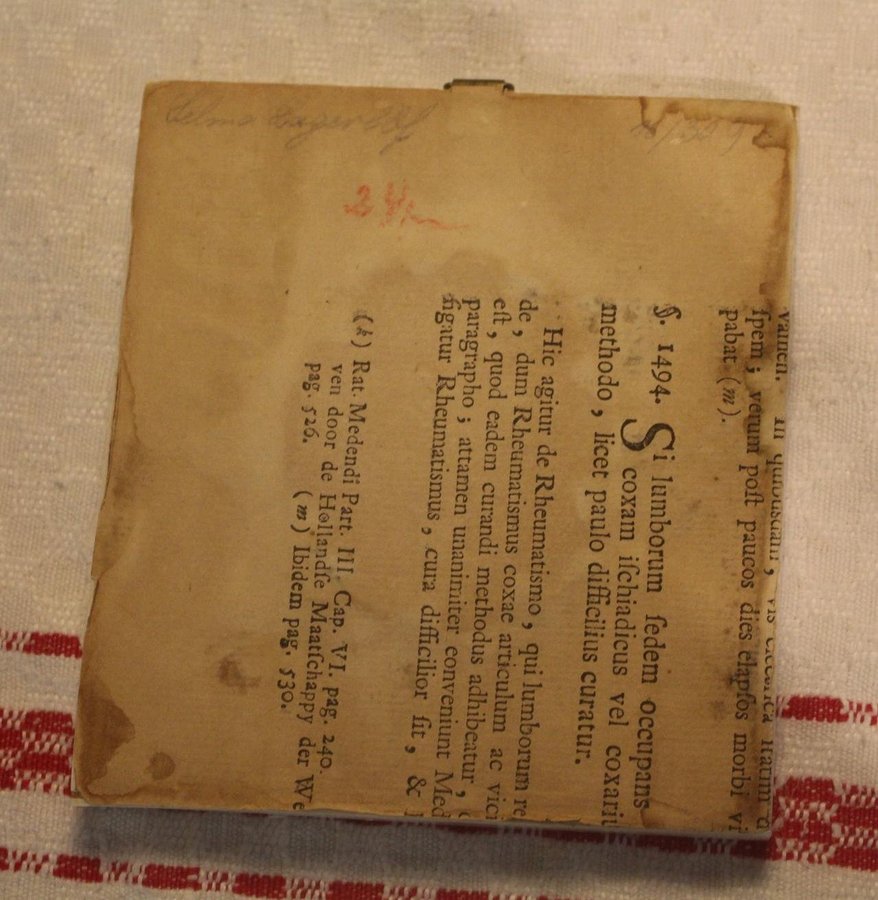 Selma Lagerlöf
vamen. In quibusdam, vis electrica statim d
ſpem; verum poſt paucos dies elapſos morbi vi
pabat (m).
§. 1494. Si lumborum ſedem occupans
coxam iſchiadicus vel coxariu
methodo, licet paulo difficilius curatur.
Hic agitur de Rheumatismo, qui lumborum re
de, dum Rheumatismus coxae articulum ac vici
eſt, quod eadem curandi methodus adhibeatur,
paragrapho; attamen unanimiter conveniunt Med
figatur Rheumatismus, cura difficilior fit, &
(k) Rat. Medendi Part. III. Cap. VI. pag. 240.
ven door de Hollandſe Maatſchappy der We
pag. 526. (m) Ibidem pag. 530.